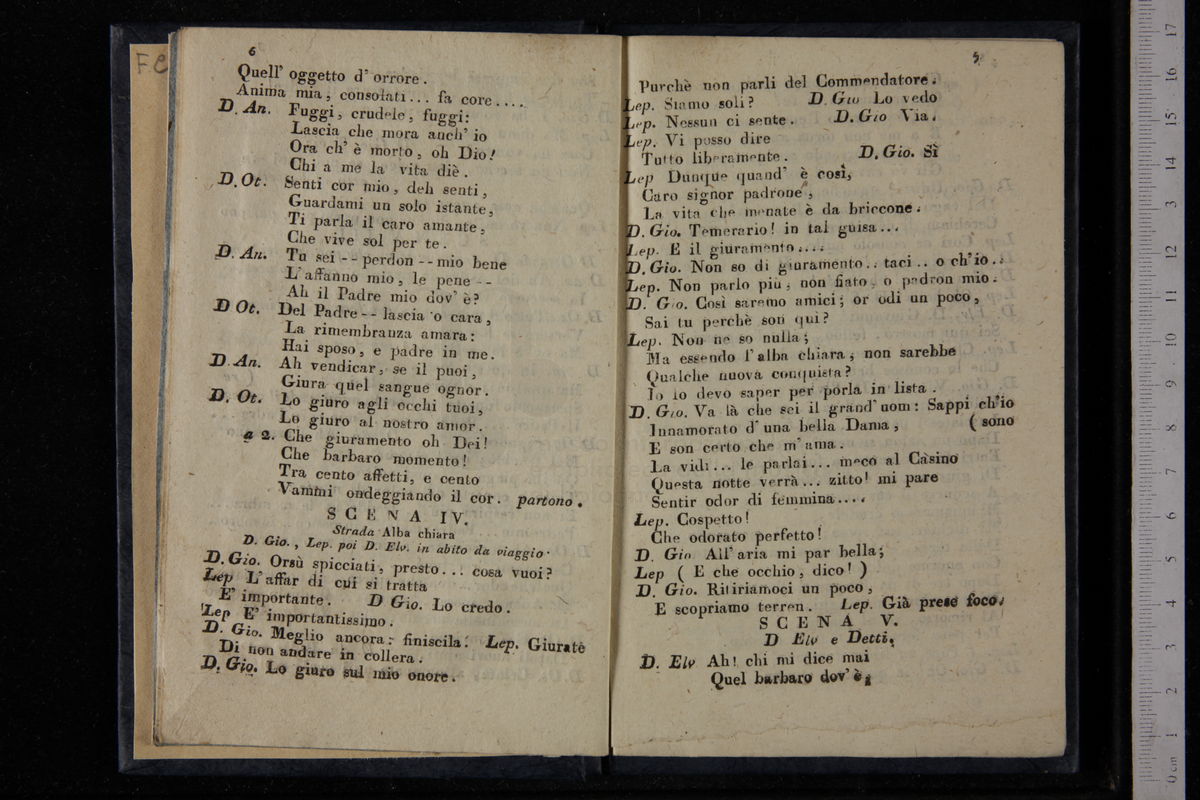 FC
6
Quell' oggetto d' orrore.
Anima mia, consolati... fa core....
D. An. Fuggi, crudele, fuggi:
Lascia che mora anch' io
Ora ch' è morto, oh Dio!
Chi a me la vita diè.
D. Ot. Senti cor mio, deh senti,
Guardami un solo istante,
Ti parla il caro amante,
Che vive sol per te.
D. An. Tu sei -- perdon -- mio bene
L' affanno mio, le pene --
Ah il Padre mio dov' è?
D Ot. Del Padre -- lascia o cara,
La rimembranza amara:
Hai sposo, e padre in me.
D. An. Ah vendicar, se il puoi,
Giura quel sangue ognor.
D. Ot. Lo giuro agli occhi tuoi,
Lo giuro al nostro amor.
a 2. Che giuramento oh Dei!
Che barbaro momento!
Tra cento affetti, e cento
Vammi ondeggiando il cor. partono.
SCENA IV.
Strada Alba chiara
D. Gio., Lep. poi D. Elv. in abito da viaggio.
D. Gio. Orsù spicciati, presto... cosa vuoi?
Lep L' affar di cui si tratta
E' importante. D Gio. Lo credo.
Lep E' importantissimo.
D. Gio. Meglio ancora: finiscila. Lep. Giurate
Di non andare in collera.
D. Gio. Lo giuro sul mio onore.
5
Purchè non parli del Commendatore.
Lep. Siamo soli? D. Gio Lo vedo
Lep. Nessun ci sente. D. Gio Via.
Lep. Vi posso dire
Tutto liberamente. D. Gio. Sì
Lep Dunque quand' è così,
Caro signor padrone,
La vita che menate è da briccone.
D. Gio. Temerario! in tal guisa...
Lep. E il giuramento....
D. Gio. Non so di giuramento.. taci.. o ch' io..
Lep. Non parlo più, non fiato, o padron mio.
D. Gio. Così saremo amici; or odi un poco,
Sai tu perchè son qui?
Lep. Non ne so nulla;
Ma essendo l' alba chiara, non sarebbe
Qualche nuova conquista?
Io lo devo saper per porla in lista.
D. Gio. Va là che sei il grand' uom: Sappi ch' io
Innamorato d' una bella Dama, ( sono
E son certo che m' ama.
La vidi... le parlai... meco al Casino
Questa notte verrà... zitto! mi pare
Sentir odor di femmina....
Lep. Cospetto!
Che odorato perfetto!
D. Gio All' aria mi par bella;
Lep ( E che occhio, dico! )
D. Gio. Ritiriamoci un poco,
E scopriamo terren. Lep. Già prese foco.
SCENA V.
D Elv e Detti.
D. Elv Ah! chi mi dice mai
Quel barbaro dov' è,
0 cm 1 2 3 4 5 6 7 8 9 10 11 12 13 14 15 16 17